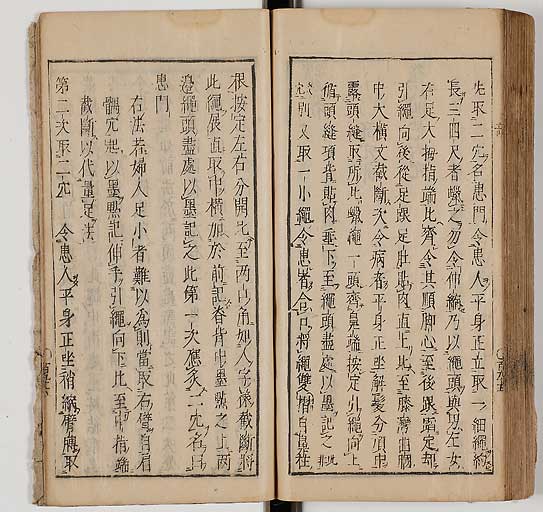 先取二穴名患門令患人平身正立取一細繩約
長三四尺者蠟之勿令伸縮乃以繩頭與男左女
右足大拇指端比齊令其順脚心至後跟踏定却
引繩向後從足跟足肚貼肉直上比至膝灣膕
中大橫文截斷次令病者平身正坐解髮分頂中
露頭縫取所比蠟繩一頭齊鼻端按定引繩向上
循頭縫項背貼肉垂下至繩頭盡處以墨記之
別又取一小繩令患者合口將繩雙摺自鼻柱
根按定左右分開比至兩口角如人字樣截斷將
此繩展直取中橫加於前記脊背中墨點之上兩
邊繩頭盡處以墨記之此第一次應灸二穴名曰
患門
右法若婦人足小者難以為則當取右臂自肩
髃穴起以墨點記伸手引繩向下比至中指端
截斷以代量足法
第二次取二穴 令患人平身正坐稍縮臂膊取